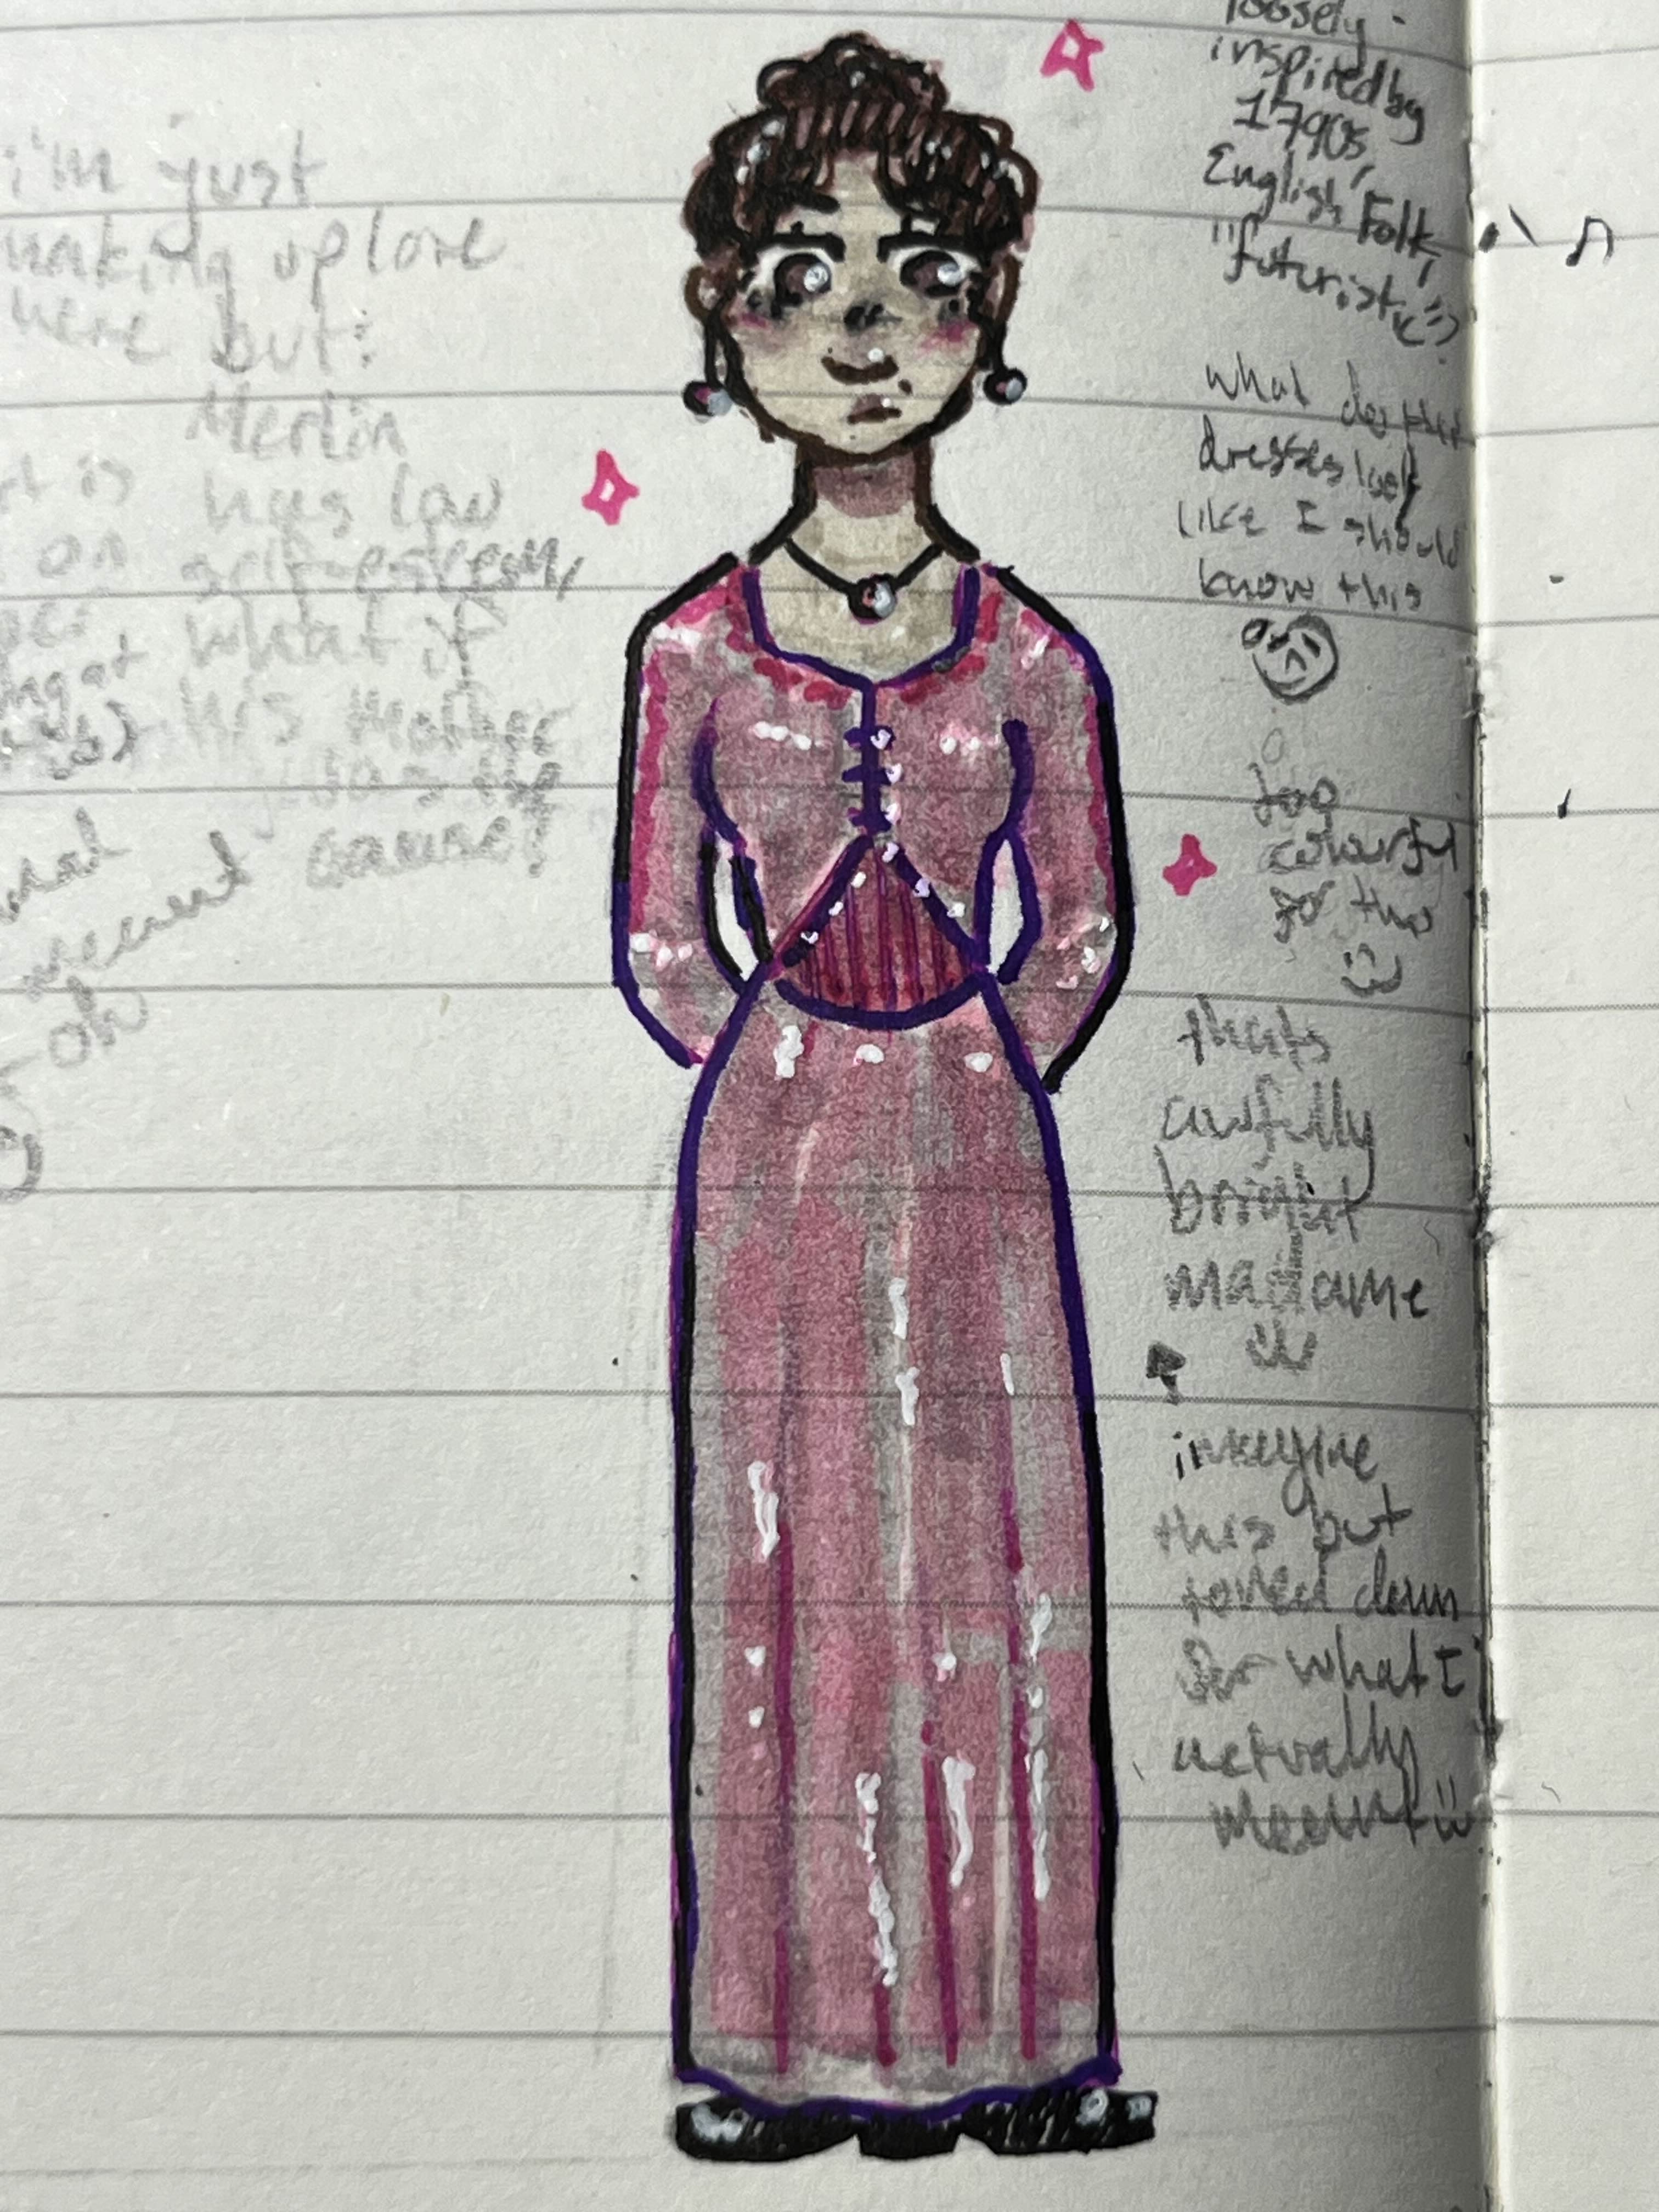 i'm just
making up lore
here but:
Merlin
has low
self-esteem,
what if
his mother
was the
cause?
is
on
accent
oh
loosely
inspired by
1790s,
English, Folk,
"futurist
what do the
dresses look
like I should
know this
too
colourful
for this
thats
awfully
bright
madame
imagine
this but
toned down
for what I
actually
meant